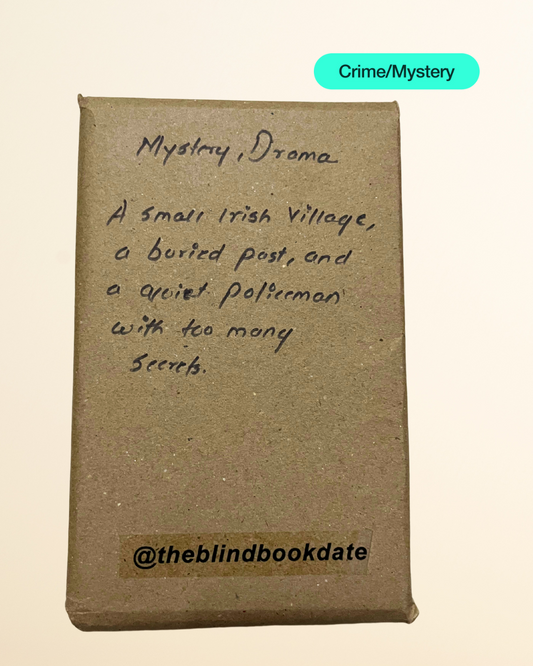 Crime/Mystery
Mystery, Drama
A small Irish Village,
a buried past, and
a quiet policeman
with too many
secrets.
@theblindbookdate